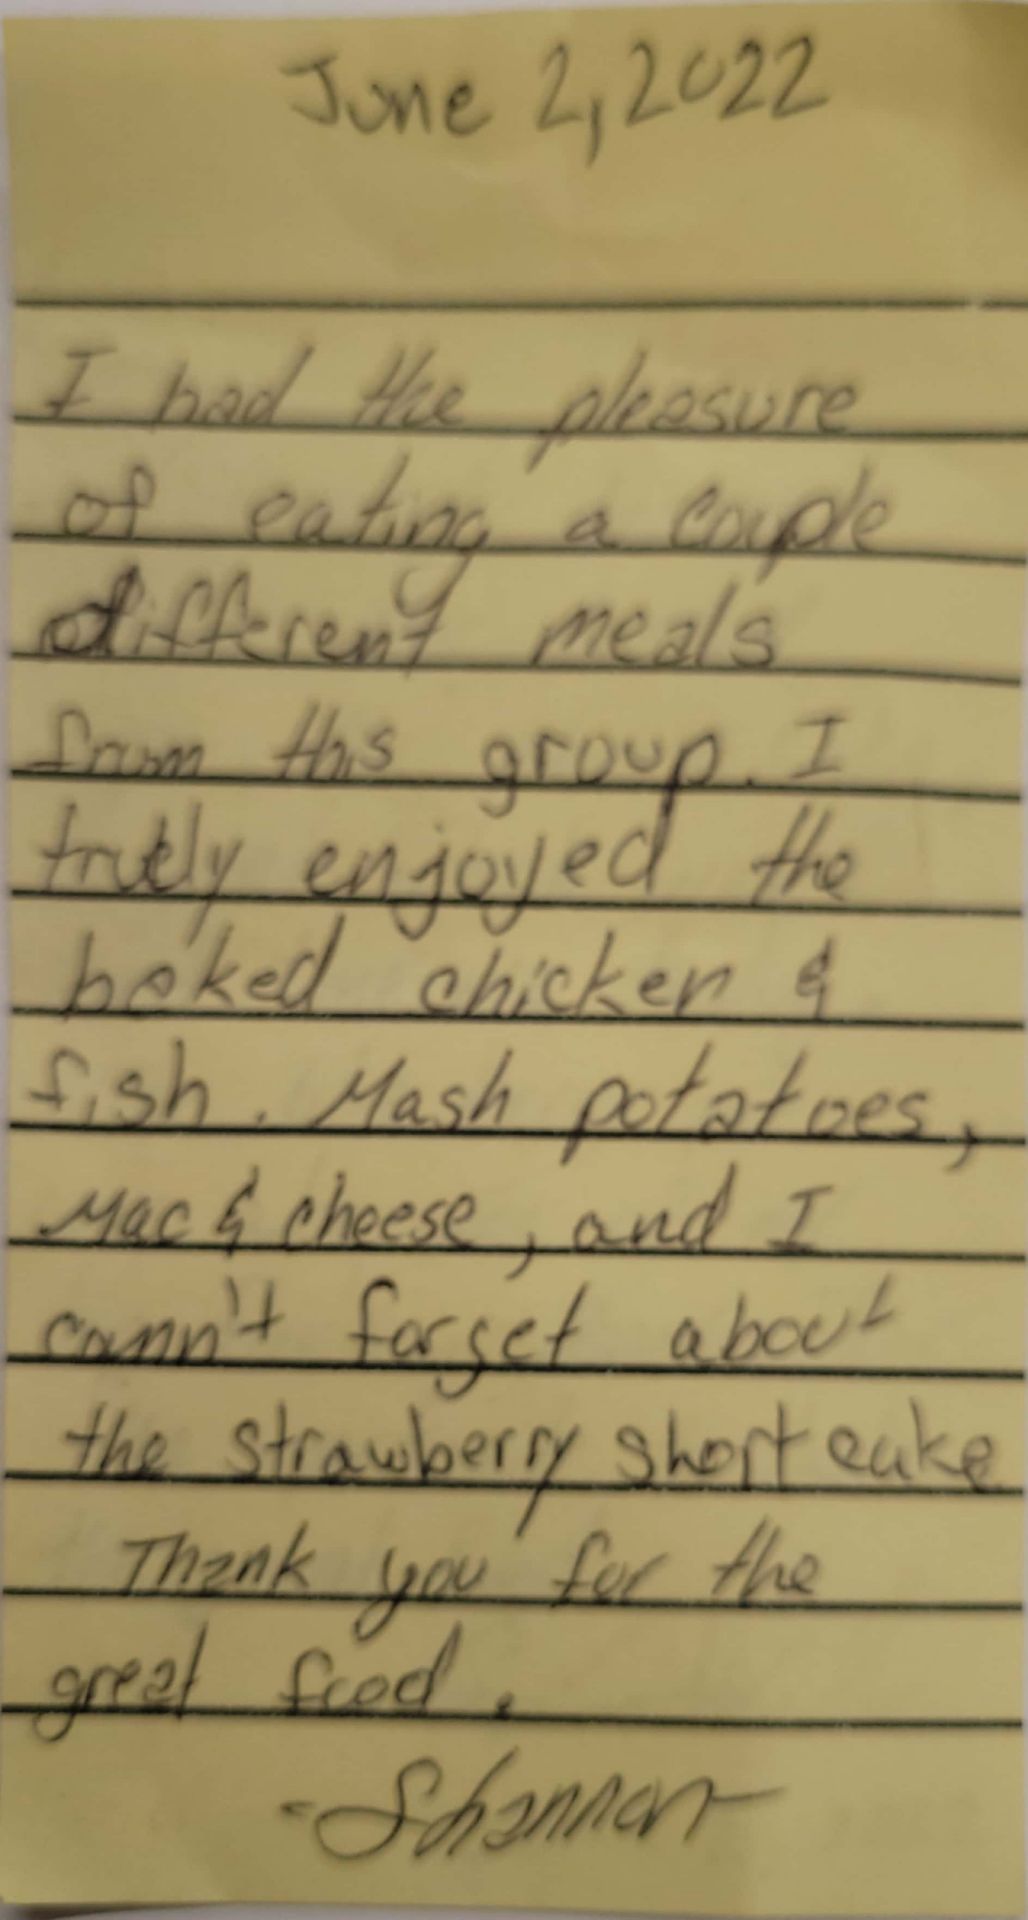 June 2, 2022
I had the pleasure
of eating a couple
different meals
from this group. I
truely enjoyed the
baked chicken &
fish. Mash potatoes,
Mac & cheese, and I
cann't forget about
the strawberry short cake
Thank you for the
great food.
-Shannon